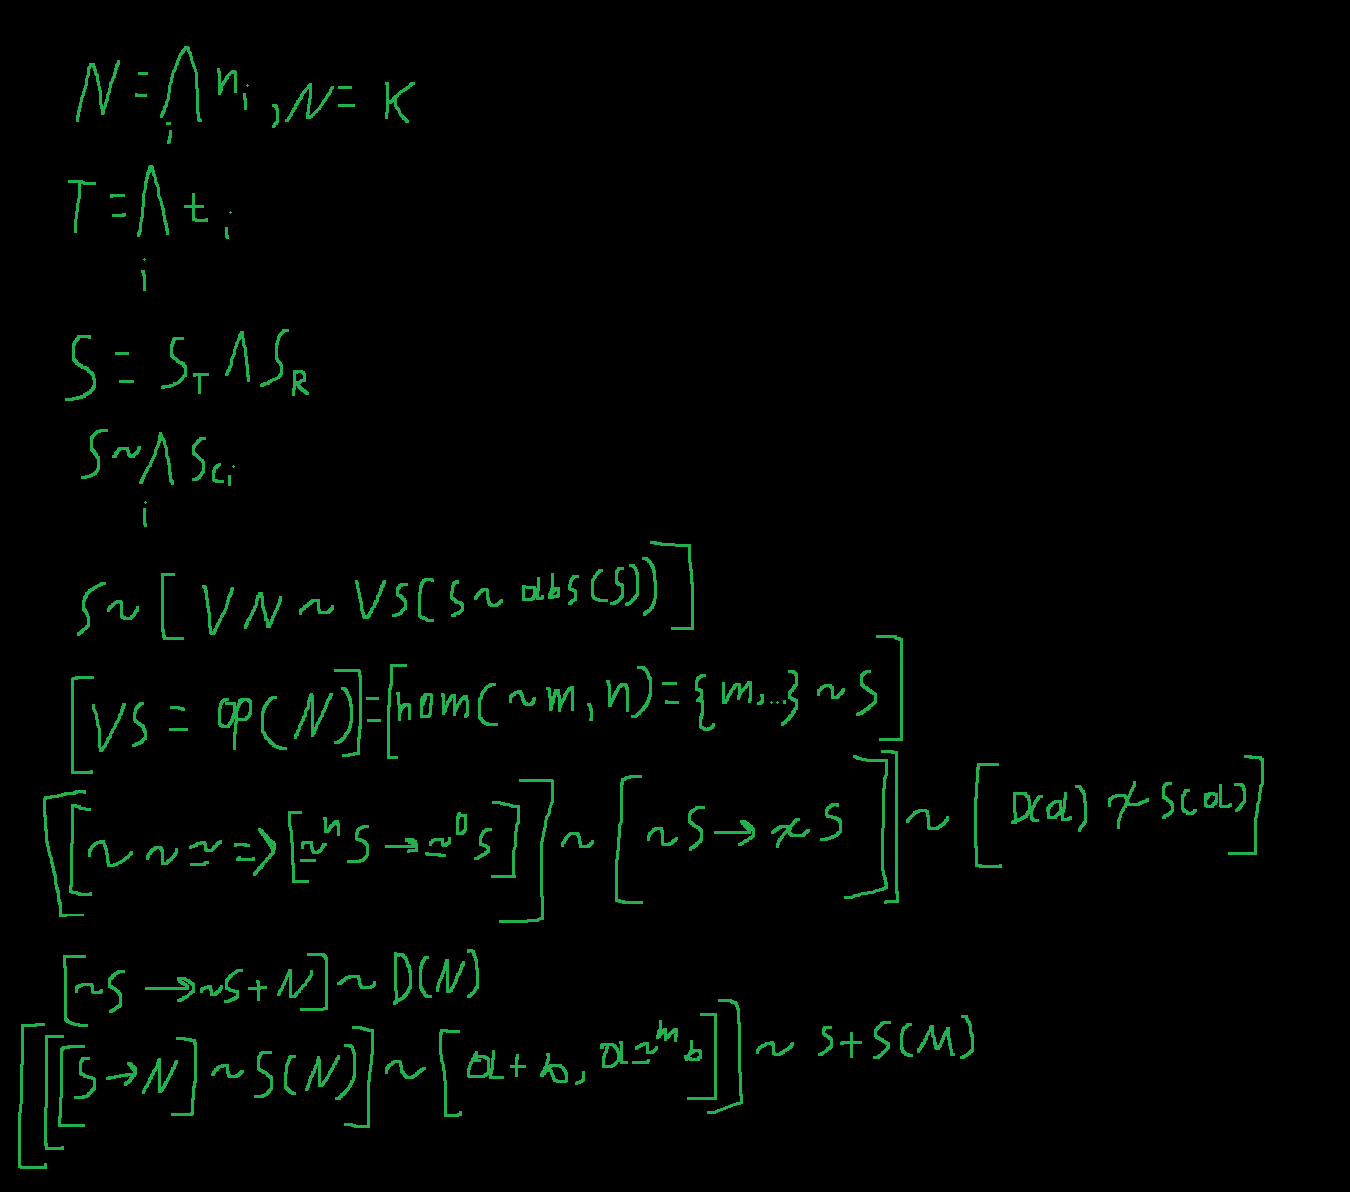 N = ⋀ n_i , N = K
i
T = ⋀ t_i
i
S = S_T ∧ S_R
S ~ ⋀ S_{c_i}
i
S ~ [ V N ~ V S ( S ~ abs(S) ) ]
[ V S = op(N) ] = [ hom(~m, n) = {m, ...} ~ S ]
[[[ ~ ~ ≃ => [ ≃^n S → ≃^0 S ] ] ~ [ ~S → ≁ S ]] ~ [ D(a) ≁ S(a) ]
[ ~S → ~S + N ] ~ D(N)
[[[ S → N ] ~ S(N) ] ~ [ a + b, a ≃^m b ]] ~ S + S(M)